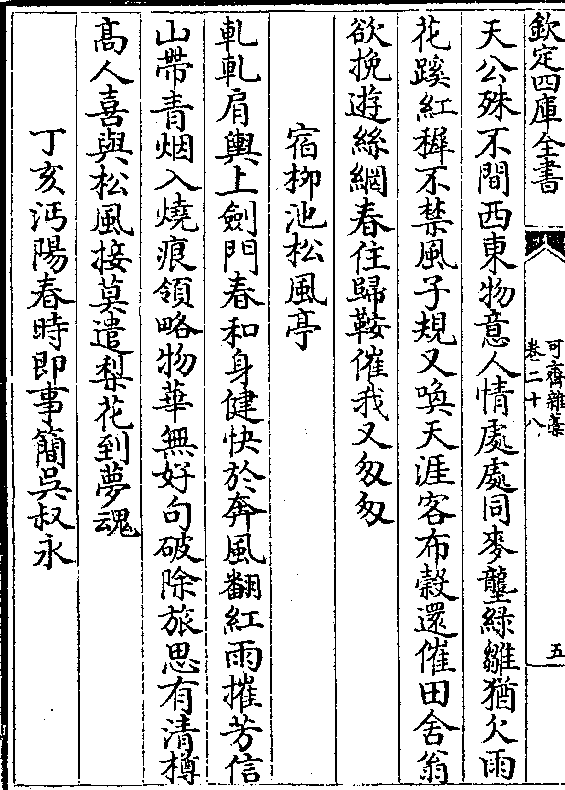 欽定四庫全書
可齋雜藁
卷二十八
五
天公殊不間西東物意人情處處同麥壟緑雖猶欠雨
花蹊紅穉不禁風子規又喚天涯客布穀還催田舍翁
欲挽遊絲綱春住歸鞍催我又匆匆
宿栁池松風亭
軋軋肩輿上劍門春和身健快於奔風翻紅雨摧芳信
山帶青烟入燒痕領略物華無好句破除旅思有清樽
髙人喜與松風接莫遣梨花到夢魂
丁亥沔陽春時即事簡吳叔永